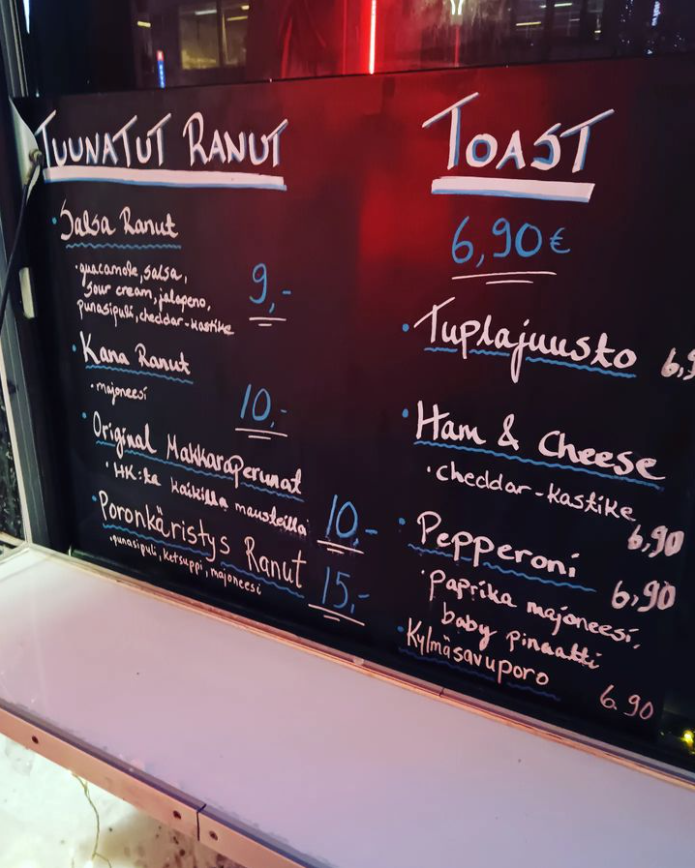 TUUNATUT RANUT
• Salsa Ranut
• guacamole, salsa,
sour cream, jalapeno,
punasipuli, cheddar-kastike
9,-
• Kana Ranut
• majoneesi
10,-
• Original Makkaraperunat
• HK:ta kaikilla mausteilla
10,-
• Poronkäristys Ranut
• punasipuli, ketsuppi, majoneesi
15,-
TOAST
6,90€
• Tuplajuusto 6,9
• Ham & Cheese
• cheddar-kastike
6,90
• Pepperoni 6,90
• paprika majoneesi,
baby pinaatti
• Kylmäsavuporo
6.90